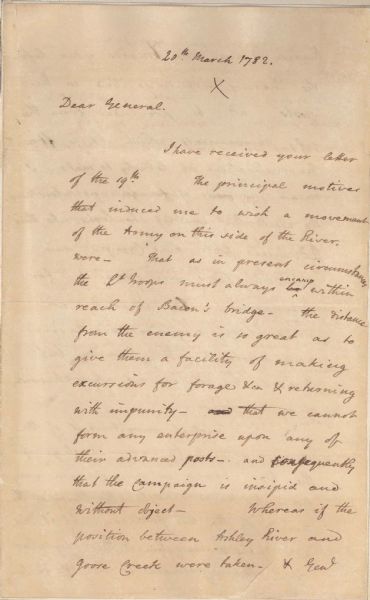 20th March 1782.
X
Dear General.
I have received your letter
of the 19th. The principal motives
that induced me to wish a movement
of the Army on this side of the River.
were - That as in present circumstances
the Lt troops must always encamp within
reach of Bacon's bridge - the distance
from the enemy is so great as to
give them a facility of making
excursions for forage &ca & returning
with impunity - and that we cannot
form any enterprise upon any of
their advanced posts - and consequently
that the campaign is insipid and
without object - Whereas if the
position between Ashley River and
Goose Creek were taken - & Genl